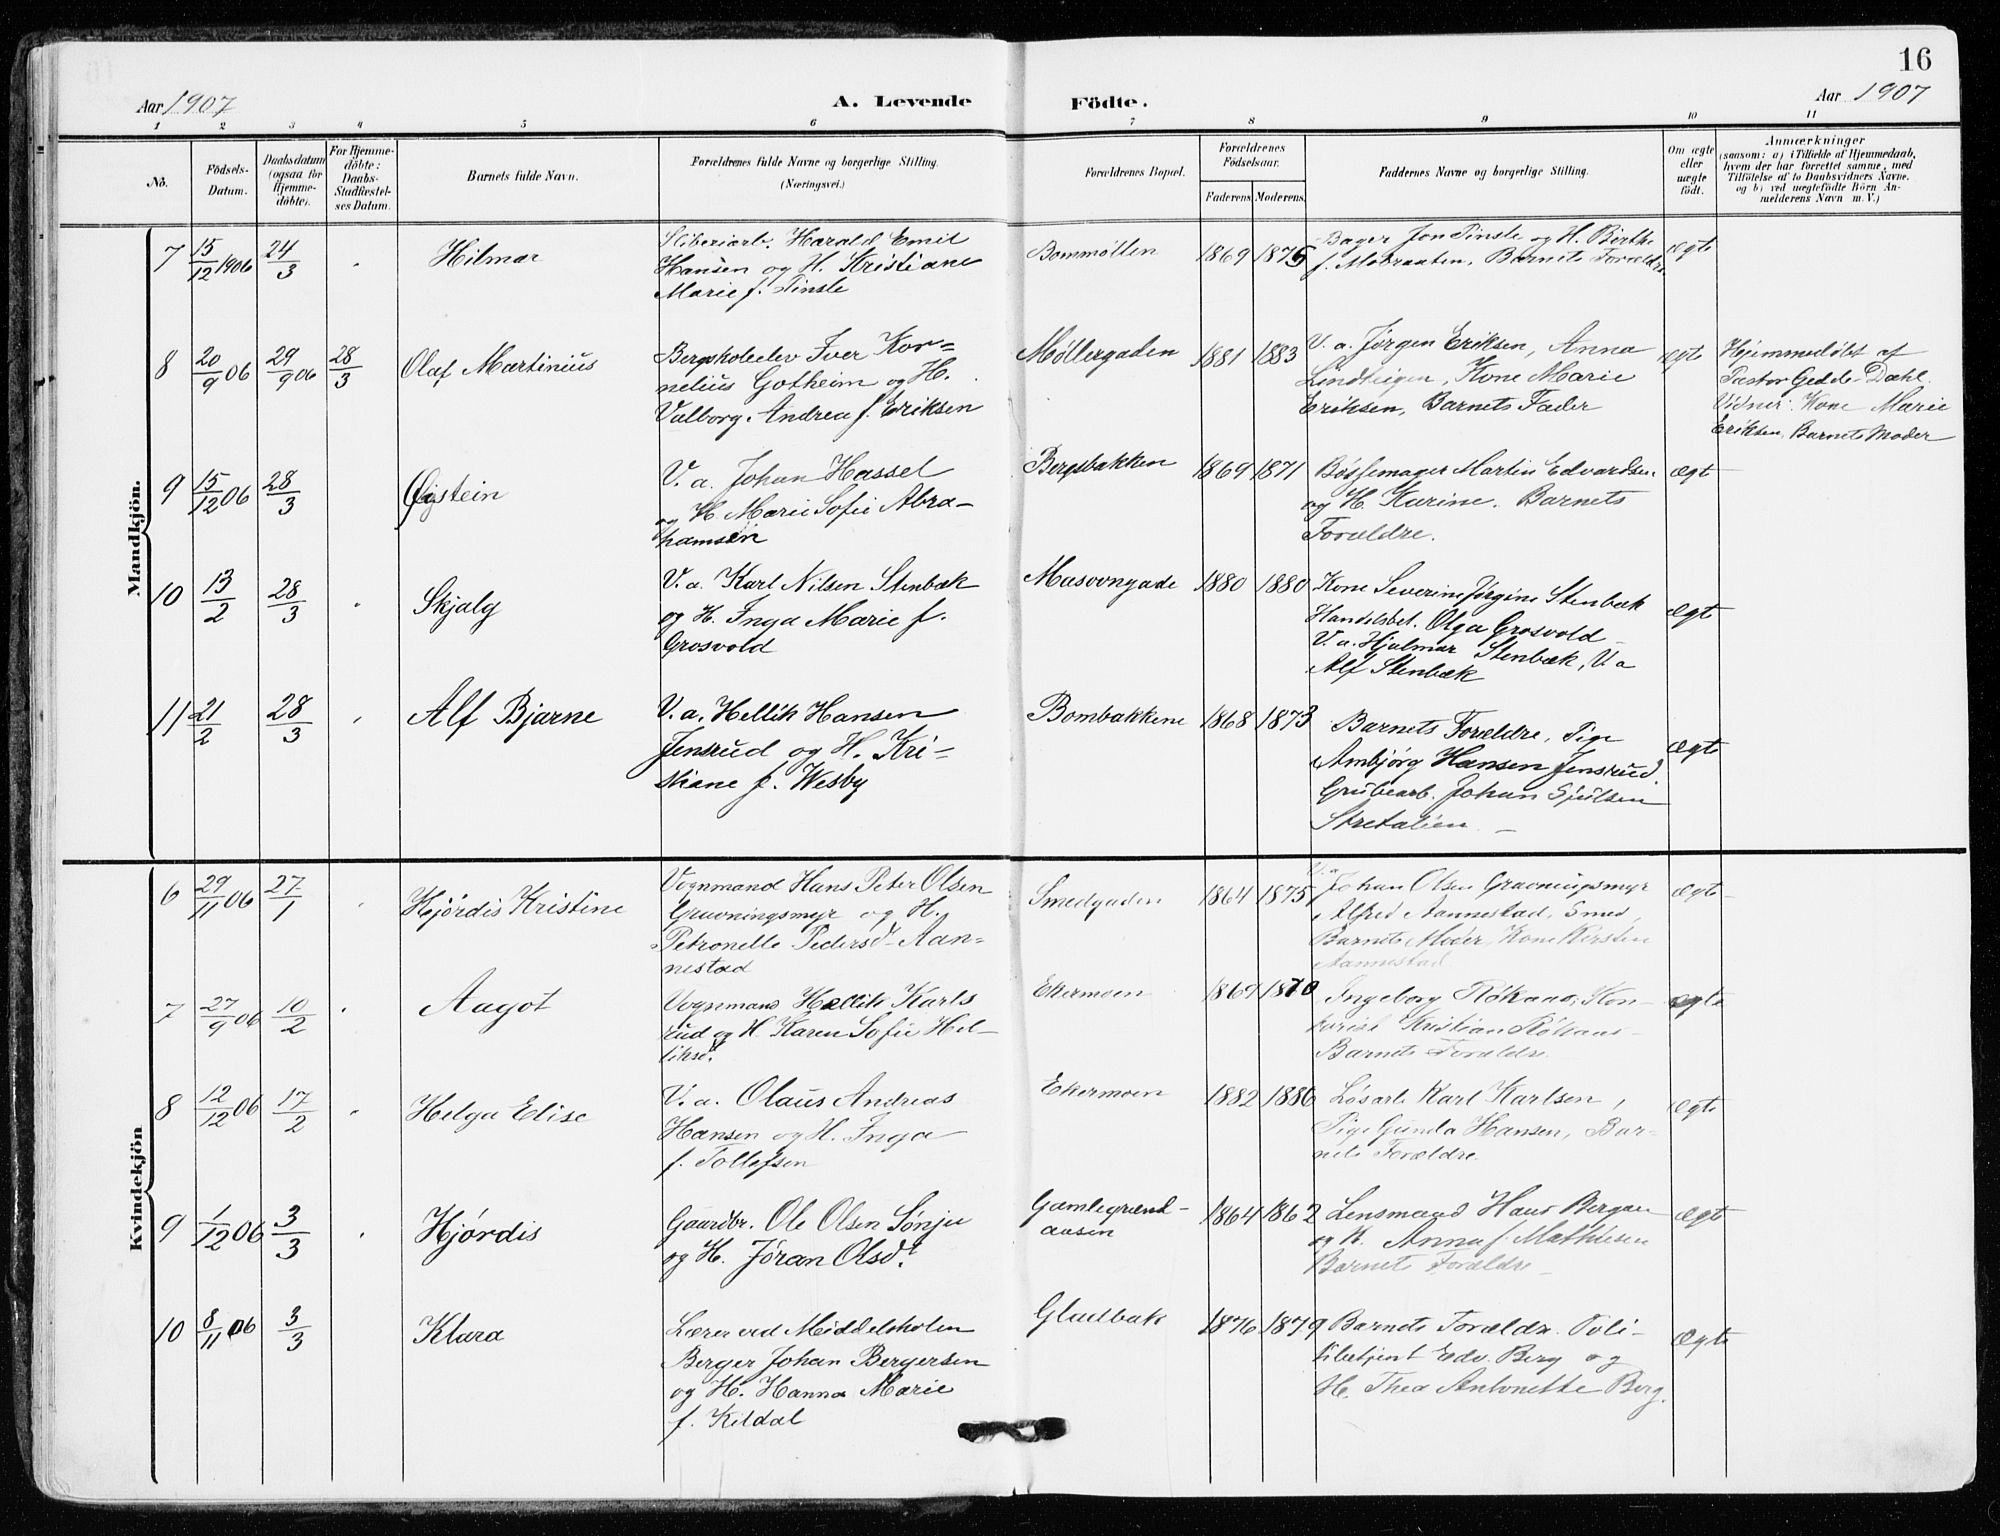 16
Aar 1907
A. Levende Födte.
Aar 1907
1 2 3 4 5 6 7 8 9 10 11
No.
Födsels-
Datum.
Daabsdatum
(ogsaa for
Hjemme-
döbte).
For Hjemme-
döbte:
Daabs-
Stadfæstel-
ses Datum.
Barnets fulde Navn.
Forældrenes fulde Navne og borgerlige Stilling.
(Næringsvei.)
Forældrenes Bopæl.
Forældrenes
Födselsaar.
Faderens Moderens
Faddernes Navne og borgerlige Stilling.
Om ægte
eller
uægte
födt.
Anmærkninger
(saasom: a) i Tilfælde af Hjemmedaab,
hvem der har forrettet samme, med
Tilföielse af to Daabsvidners Navne.
og b) ved uægtefödte Börn An-
melderens Navn m. V.)
Mandkjön.
7 15/12 1906 24/3 Hilmar
Sliberiarb. Harald Emil
Hansen og H. Kristiane
Marie f. Tinsle
Bommøllen 1869 1875
Bager Jon Tinsle og H. Birthe
f. Mobraaten, Barnets Forældre
ægte
8 20/9 06 29/9 06 28/3 Olaf Martinius
Bergskoleelev Iver Kor-
nelius Gotheim og H.
Valborg Andrea f. Eriksen
Møllergaden 1881 1883
V. a. Jørgen Eriksen, Anna
Lindteigen, Kone Marie
Eriksen, Barnets Fader
ægte
Hjemmedøbt af
Pastor Gedde-Dahl.
Vidner: Kone Marie
Eriksen, Barnets Moder
9 15/12 06 28/3 Øistein
V. a. Johan Hassel
og H. Marie Sofie Abra-
hamsen
Bergsbakken 1869 1871
Bøssemager Martin Edvardsen
og H. Karine. Barnets
Forældre.
ægt
10 13/2 28/3 Skjalg
V. a. Karl Nilsen Stenbæk
og H. Inga Marie f.
Grosvold
Masovngade 1880 1880
Kone Severine Jørgine Stenbæk
Handelsbet. Olga Grosvold
V. a. Hjalmar Stenbæk, V. a
Alf Stenbæk
ægte
11 21/2 28/3 Alf Bjarne
V. a. Hellik Hansen
Jensrud og H. Kri-
stiane f. Wesby
Bombakkene 1868 1873
Barnets Forældre, Pige
Ambjørg Hansen Jensrud.
Grubearb. Johan Sjulsen
Stretalien
ægte
Kvindekjön
6 29/11 06 27/1 Hjørdis Kristine
Vognmand Hans Peter Olsen
Gravningsmyr og H.
Petronelle Pedersd. Aan-
nestad
Smedgaden 1864 1875
V. a
Johan Olsen Gravningsmyr
Alfred Aannestad, Smed,
Barnets Moder, Kone Kirsten
Aannestad
ægte
7 27/9 06 10/2 Aagot
Vognmand Hellik Karls
rud og H. Karen Sofie Hel-
liksd.
Ekermoen 1869 1870
Ingeborg Røkaas, Kon-
torist Kristian Røkaas
Barnets Forældre.
ægte
8 12/12 06 17/2 Helga Elise
V. a. Olaus Andreas
Hansen og H. Inga
f. Tollefsen
Ekermoen 1882 1886
Løsarb. Karl Karlsen,
Pige Gunda Hansen, Bar-
nets Forældre.
ægte
9 1/12 06 3/3 Hjørdis
Gaardbr. Ole Olsen Sønju
og H. Jøran Olsdt.
Gamlegrænd-
aasen 1864 1862
Lensmand Hans Bergan
og H. Anna f. Mathiesen
Barnets Forældre
ægte
10 8/11 06 3/3 Klara
Lærer ved Middelskolen
Berger Johan Bergersen
og H. Hanna Marie
f. Kildal
Gladbak 1876 1879
Barnets Forældre. Poli-
tibetjent Edv. Berg og
H. Thea Antonette Berg.
ægte